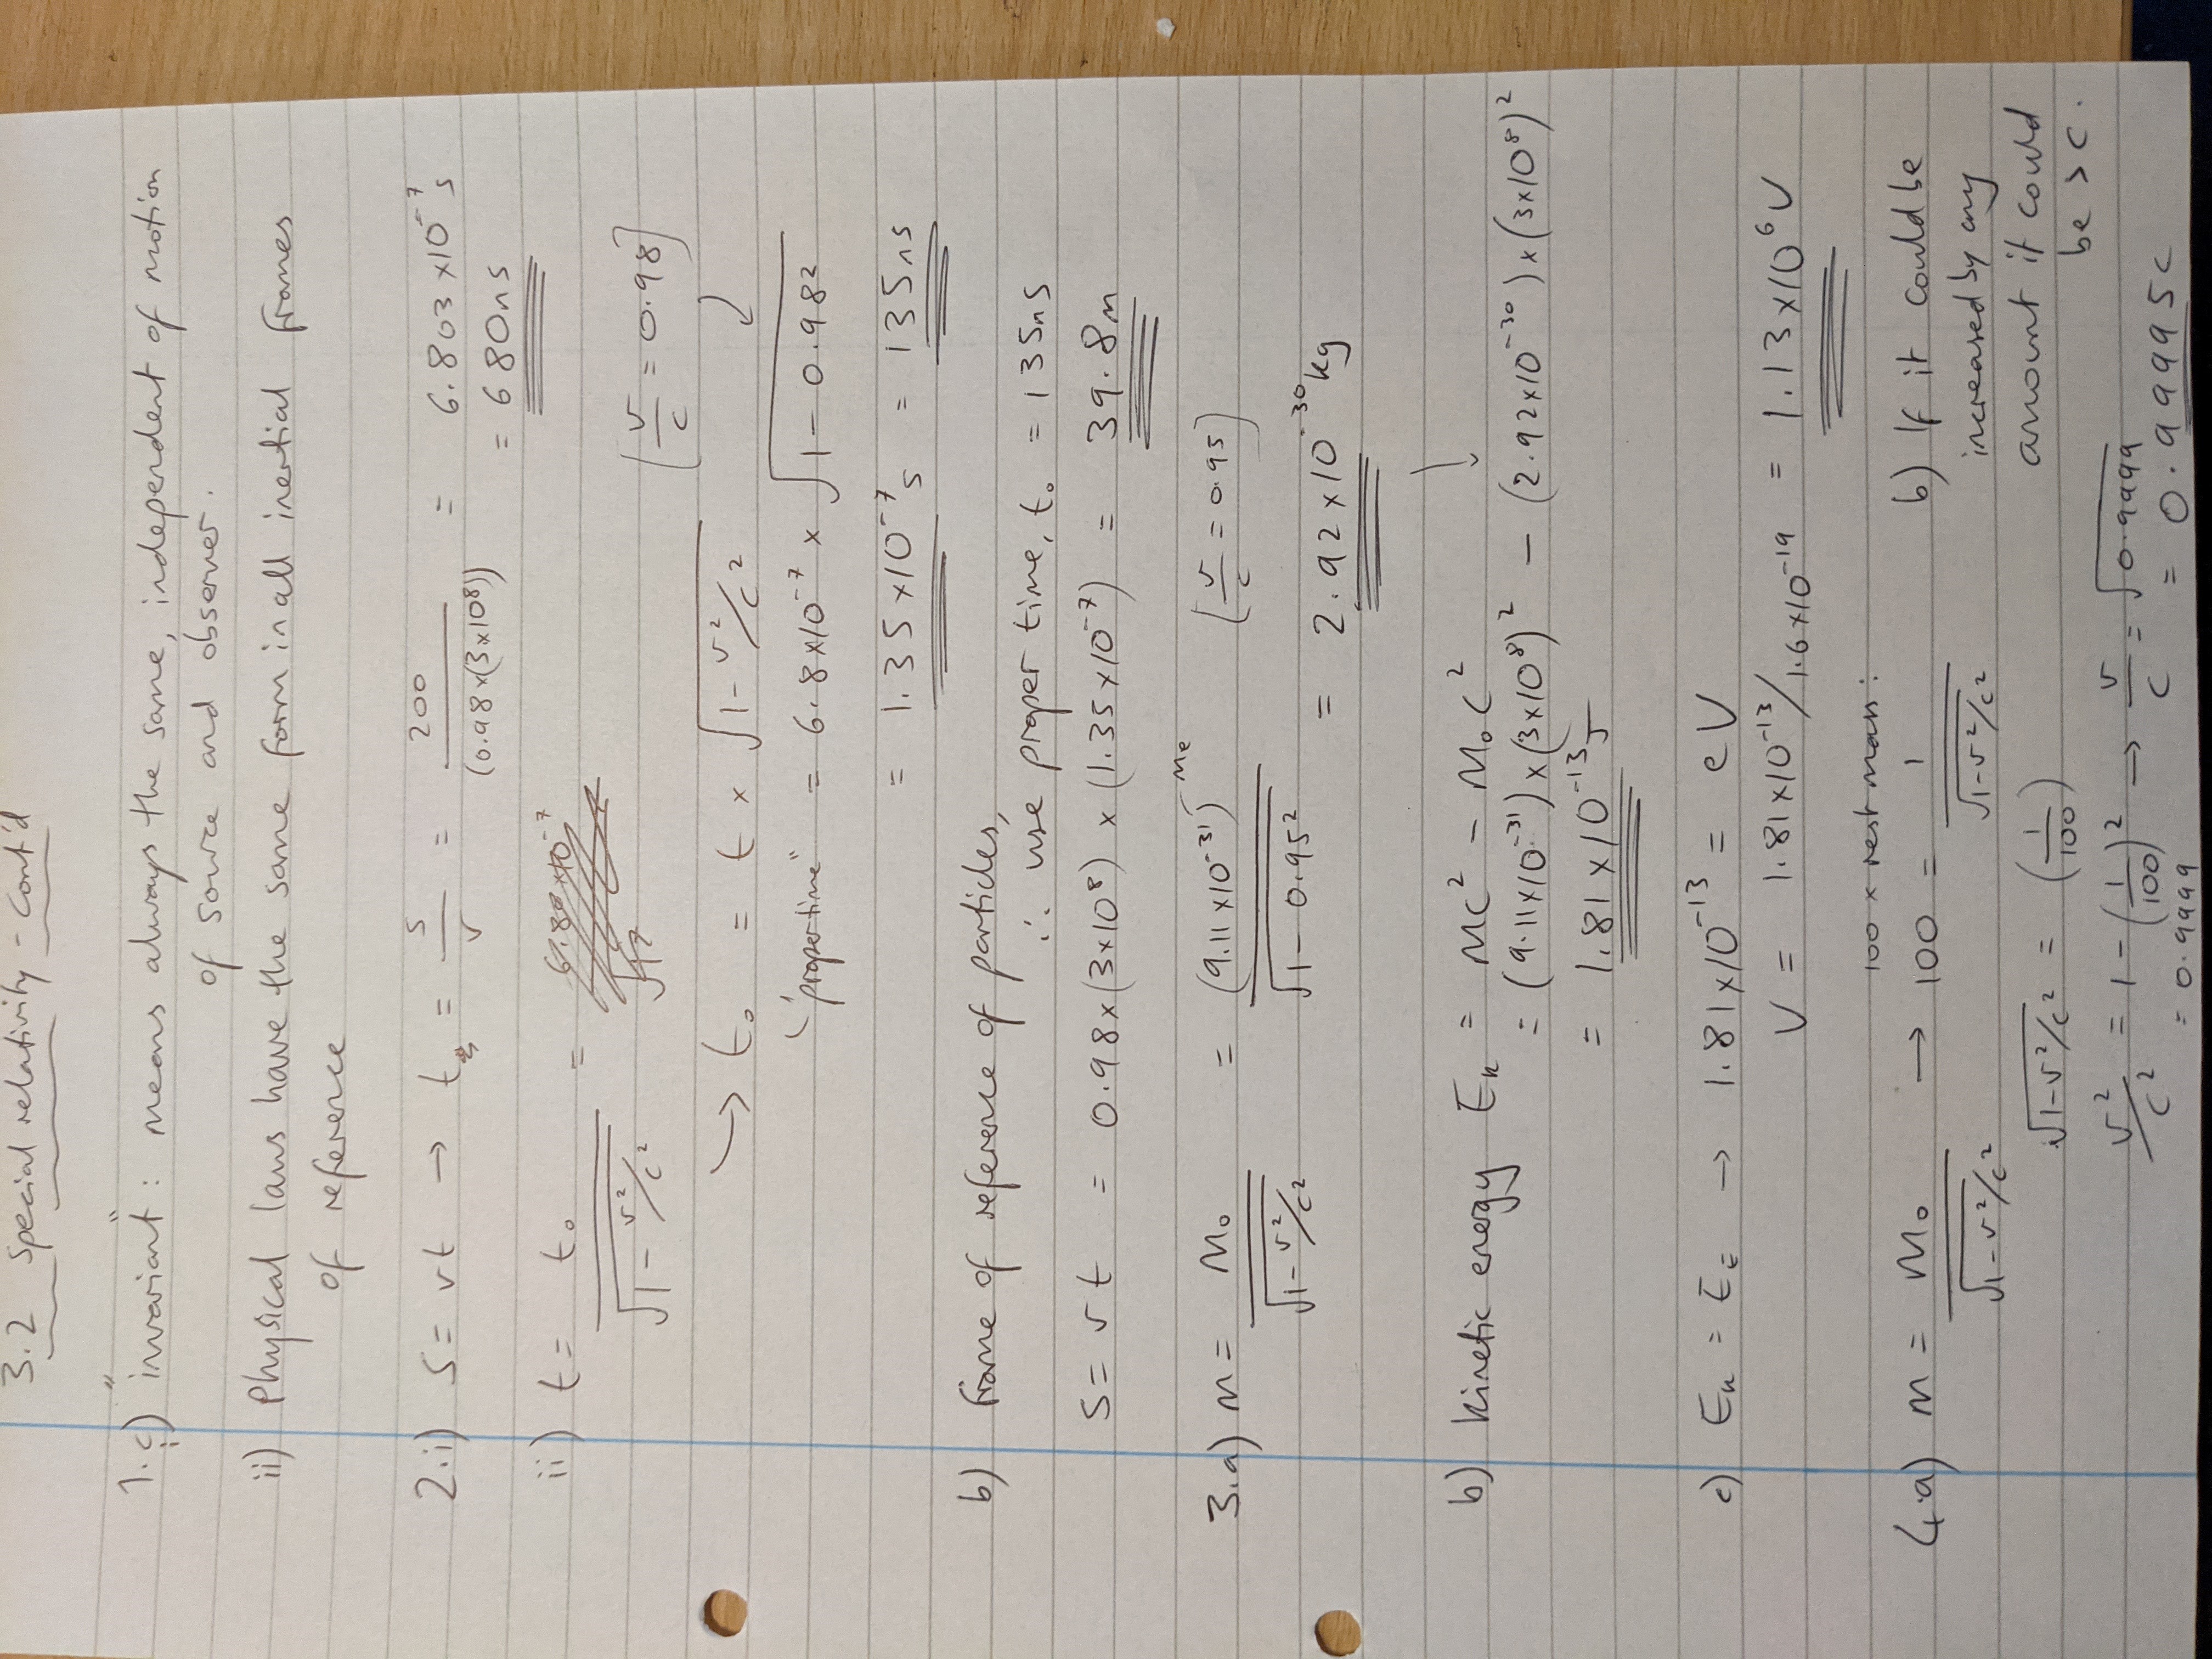 3.2 Special relativity - Cont'd
1.i) "invariant": means always the same, independent of motion
of source and observer.
ii) Physical laws have the same form in all inertial frames
of reference
2.i) S = vt → t = s/v = 200/(0.98×(3×10⁸)) = 6.803×10⁻⁷ s
= 680ns
ii) t = t₀/√(1-v²/c²) =
[v/c = 0.98]
↪ t₀ = t × √(1-v²/c²)
"proper time" = 6.8×10⁻⁷ × √(1-0.98²)
= 1.35×10⁻⁷ s = 135ns
b) Frame of reference of particles,
∴ use proper time, t₀ = 135ns
S = vt = 0.98×(3×10⁸) × (1.35×10⁻⁷) = 39.8m
3.a) m = m₀/√(1-v²/c²) = (9.11×10⁻³¹)/√(1-0.95²) me [v/c = 0.95]
= 2.92×10⁻³⁰ kg
b) kinetic energy Eₖ = mc² - m₀c²
= (9.11×10⁻³¹)×(3×10⁸)² - (2.92×10⁻³⁰)×(3×10⁸)²
= 1.81×10⁻¹³ J
c) Eₖ = E_E → 1.81×10⁻¹³ = eV
V = 1.81×10⁻¹³/1.6×10⁻¹⁹ = 1.13×10⁶ V
100 × rest mass:
4.a) m = m₀/√(1-v²/c²) → 100 = 1/√(1-v²/c²)
√(1-v²/c²) = (1/100)
v²/c² = 1-(1/100)² → v/c = √0.9999
= 0.9999 = 0.99995c
b) If it could be
increased by any
amount it could
be > c.